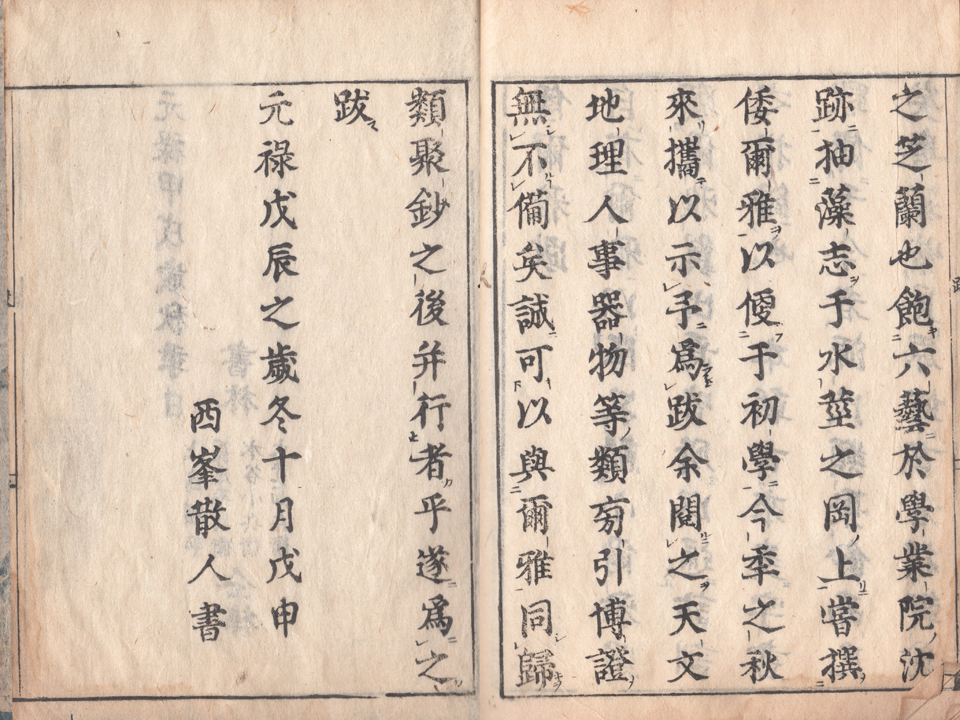 之芝蘭也飽六藝於學業院沈
跡抽藻志于水莖之岡上嘗撰
倭爾雅以便于初學今季之秋
來攜以示予爲跋余閱之天文
地理人事器物等類旁引博證
無不備矣誠可以與爾雅同歸
類聚鈔之後并行者乎遂爲之
跋
元祿戊辰之歲冬十月戊申
西峯散人書